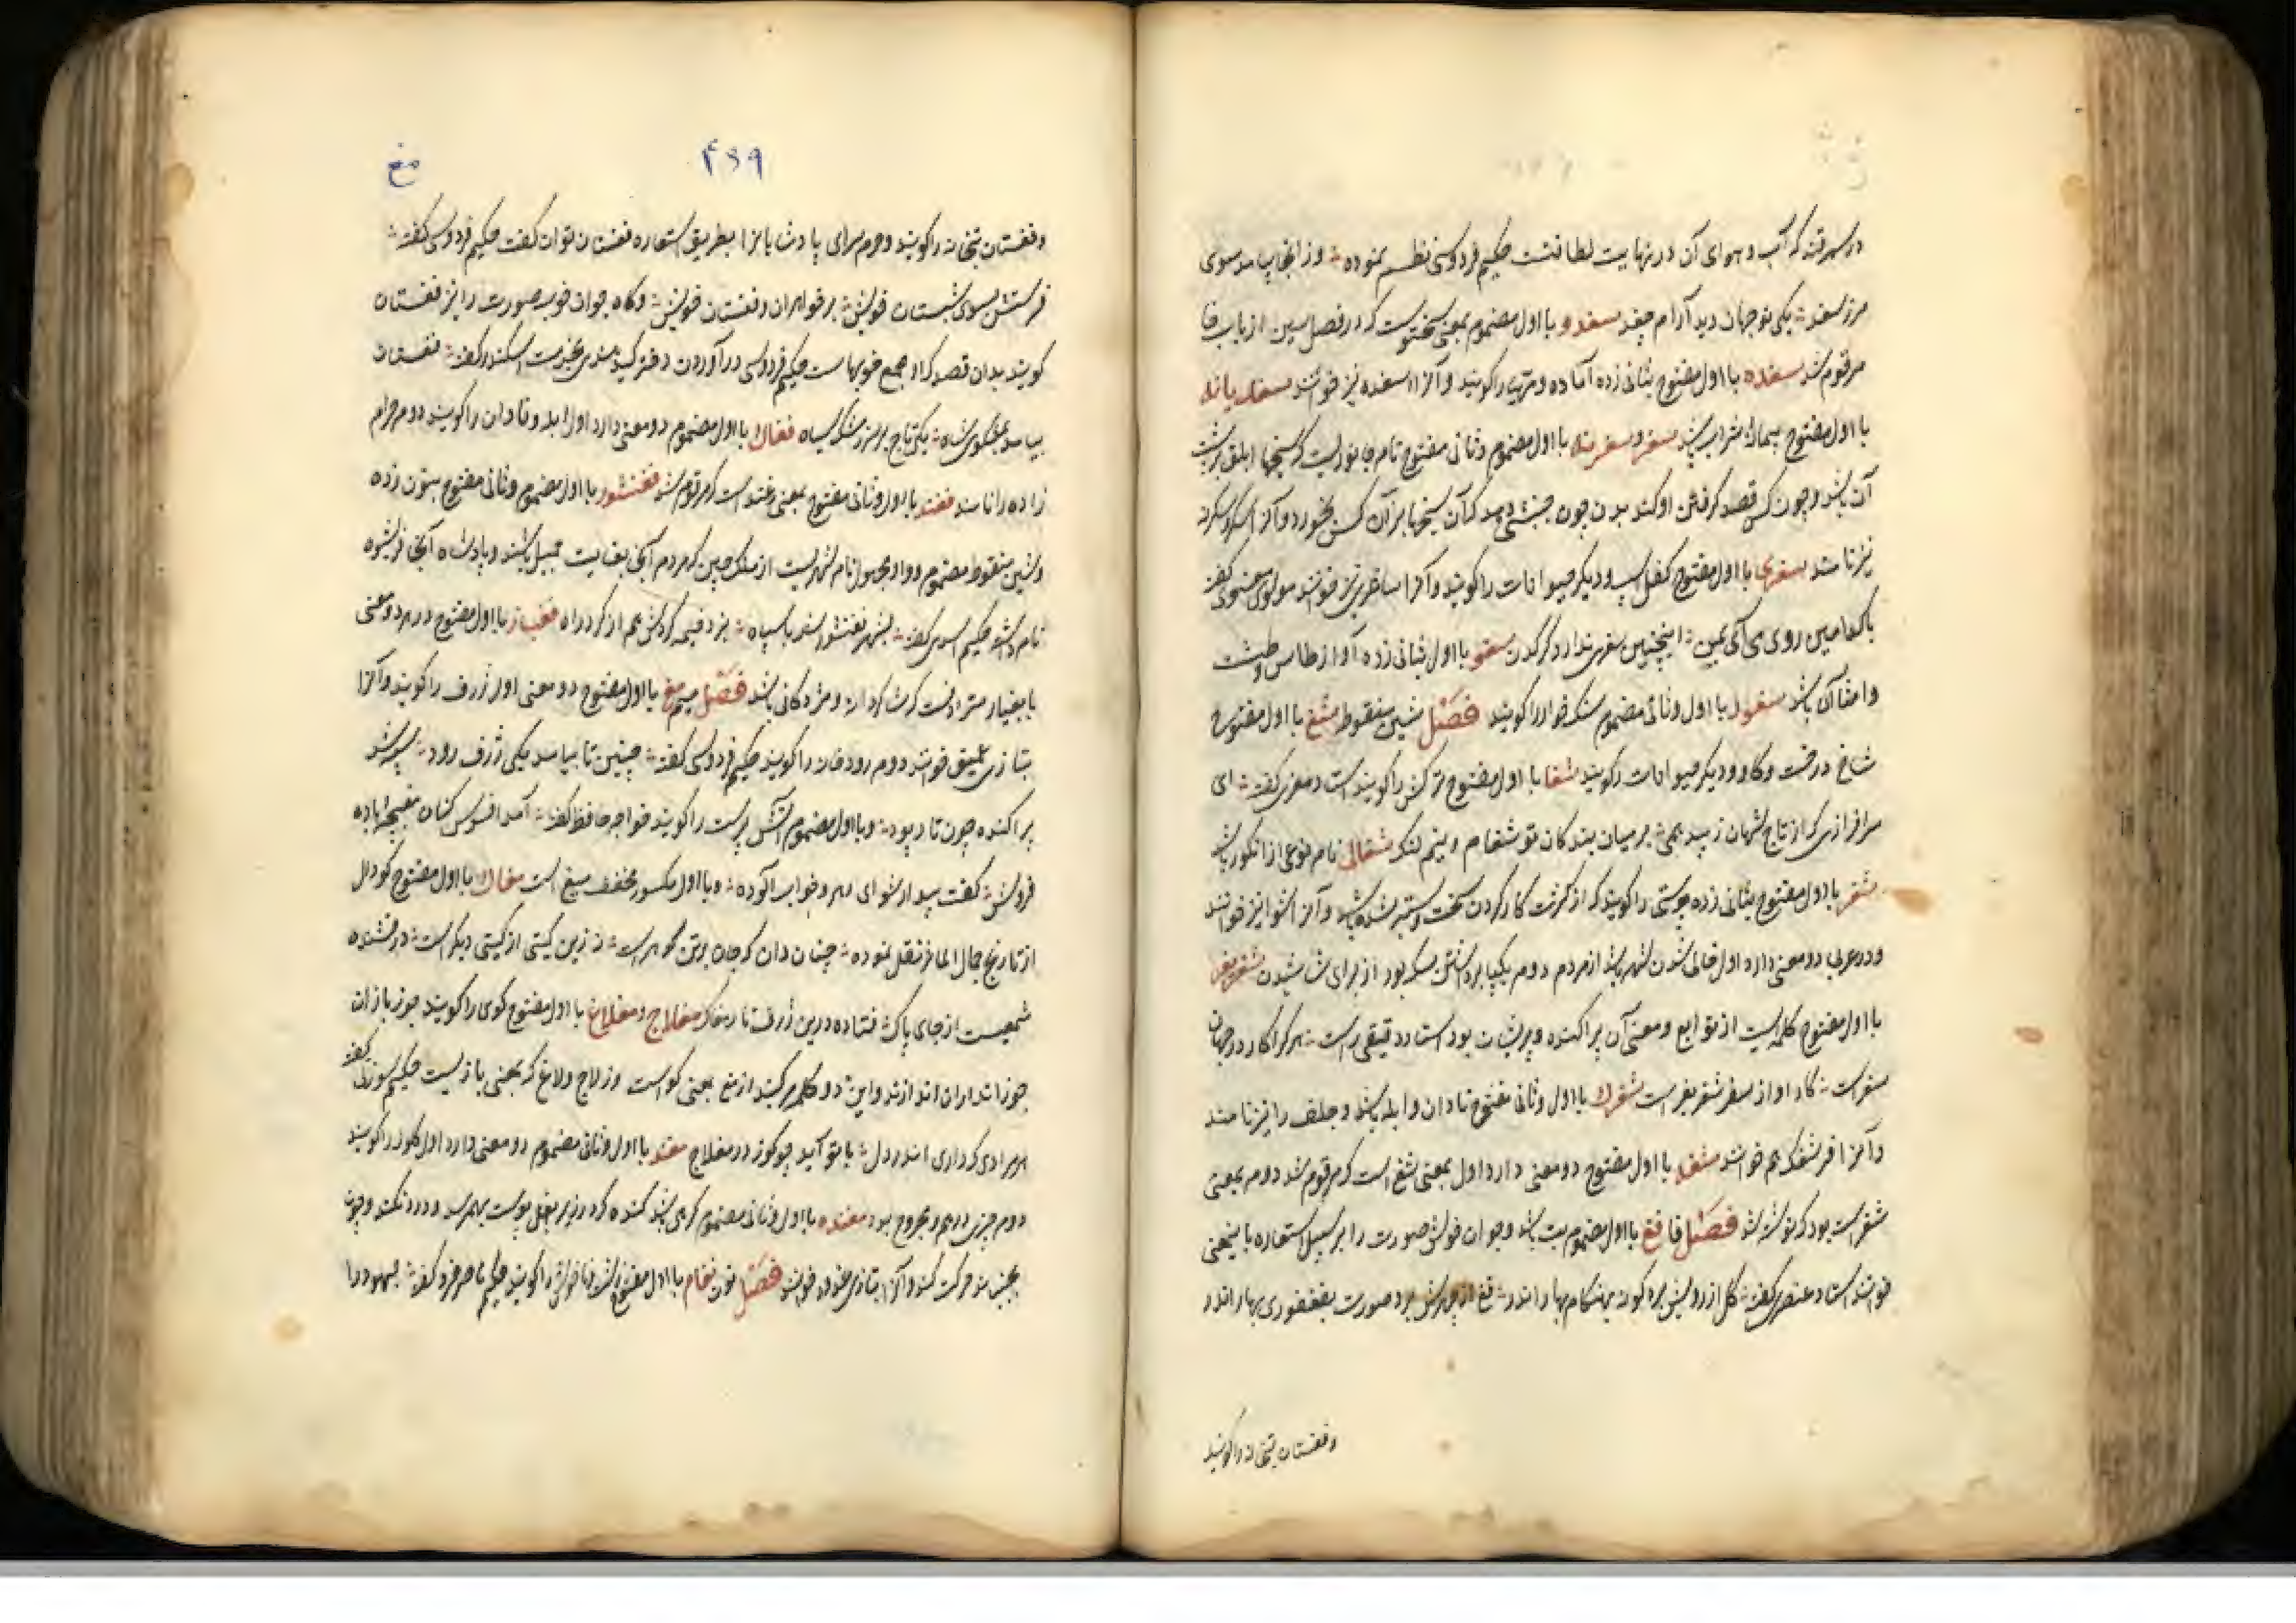 در سمرقند که آب و هوای آن در نهایت لطافتست حکیم فردوسی نظم نموده وز آنجا بیامد سوی
مرز سغد یکی نوجهان دید آرام جغد سغدو با اول مضموم بمعنی سختوست که در فصل سین از باب خا
مرقوم شد سغده با اول مفتوح بثانی زده آماده و مهیا را گویند و آنرا اسغده نیز خوانند سغدیانه
با اول مفتوح پیمانه شراب باشد سغر و سغرنه با اول مضموم و ثانی مفتوح نام جانوریست که سیخها ابلق بر پشت
آن باشد و چون کسی قصد گرفتن او کند بدن چون جنبشی دهد که آن سیخها بر آن کس بخورد و آنرا اسکر و سکرنه
نیز نامند سغری با اول مفتوح کفل اسپ و دیگر حیوانات را گویند و آنرا ساغری نیز خوانند مولوی معنوی گفته
با کدامین روی می آئی بمن اینچنین سغری ندارد کرگدن سغو با اول بثانی زده آواز طاس و طشت
و امثال آن باشد سغول با اول و ثانی مضموم سنگ خوار را گویند فصل شین منقوط شغ با اول مفتوح
شاخ درخت و گاو و دیگر حیوانات را گویند شغا با اول مفتوح ترکش را گویند استاد معزی گفته ای
سرافرازی که از تاج شهان زیبد همی بر میان بندگان تو شغا و نیم لنگ شغالی نام نوعی از انگور باشد
شغر با اول مفتوح بثانی زده پوستی را گویند که از کثرت کار کردن سخت و ستبر شده باشد و آنرا شوا نیز خوانند
و در عربی دو معنی دارد اول خالی شدن شهر باشد از مردم دوم یکپا برداشتن سگ بود از برای شاشیدن شغر بغر
با اول مفتوح کلمه ایست از توابع و معنی آن پراکنده و پریشان بود استاد دقیقی راست هر کرا کار در جهان
سفر است کار او از سفر شغر بغر است شغرک با اول و ثانی مفتوح نادان و ابله باشد و جلف را نیز نامند
و آنرا فرشغک هم خوانند شغه با اول مفتوح دو معنی دارد اول بمعنی شغ است که مرقوم شد دوم بمعنی
شغر است بود که نوشته شد فصل فا فغ با اول مضموم بت باشد و جوان خوش صورت را بر سبیل استعاره باین معنی
خوانند استاد عنصری گفته
وفغستان بتخانه را گویند
۴۶۹
مغ
وفغستان بتخانه را گویند و حرم سرای پادشاهان را بطریق استعاره فغستان توان گفت حکیم فردوسی گفته
فرستش بسوی شبستان خویش بر خواهران و فغستان خویش و گاه جوان خوب صورت را نیز فغستان
گویند بدان قصد که او مجمع خوبهاست حکیم فردوسی در آوردن دختر کید هندی بخدمت اسکندر گفته فغستان
بیامد بمشکوی شاه یکی تاج بر سر ز مشک سیاه فغاک با اول مضموم دو معنی دارد اول ابله و نادان را گویند دوم حرام
زاده را نامند فغند با اول و ثانی مفتوح بمعنی غند است که مرقوم شد فغنشور با اول مضموم و ثانی مفتوح بنون زده
و شین منقوط مضموم و واو مجهول نام شهریست از ملک چین که مردم آنجا بغایت جمیل باشند و پادشاه آنجا فریشوه
نام داشته حکیم اسدی گفته بشهر فغنشور شد با سپاه فغیاز با اول مفتوح در هر دو معنی
با بغیاز مترادفست که شاگردانه و مژدگانی باشد فصل میم مغ با اول مفتوح دو معنی اول ژرف را گویند و آنرا
بتازی عمیق خوانند دوم رودخانه را گویند حکیم فردوسی گفته چنین تا بیامد یکی ژرف رود سپه شد
پراکنده چون تار و پود و با اول مضموم آتش پرست را گویند خواجه حافظ گفته آمد افسوس کنان مغبچه باده
فروش گفت بیدار شو ای رهرو خواب آلوده و با اول مکسور مخفف میغ است مغاک با اول مفتوح گودال
از تاریخ جمال المآثر نقل نموده چنان دان که جان برترین گوهر است نه زین گیتی از گیتی دیگر است درخشنده
شمعیست از جای پاک فتاده درین ژرف تار مغاک مغلاج و مغلاغ با اول مفتوح گوی را گویند جوز بازان
جوز اندران اندازند و این دو کلمه مرکبند از مغ بمعنی گواست وز لاج و لاغ که بمعنی بازیست حکیم سوزنی گفته
هر مرادی که داری اندر دل با تو آید چو گوز در مغلاج مغند با اول و ثانی مضموم دو معنی دارد اول گلوله را گویند
دوم چیزی درهم و مجروح بود مغنده با اول و ثانی مضموم گرهی باشد گنده که در زیر بغل پوست بهم رسد و درد نکند و چون
بجنبانند حرکت کند و آنرا بتازی غدود خوانند فصل نون نغام با اول مفتوح زشت و ناخوش را گویند حکیم ناصر خسرو گفته